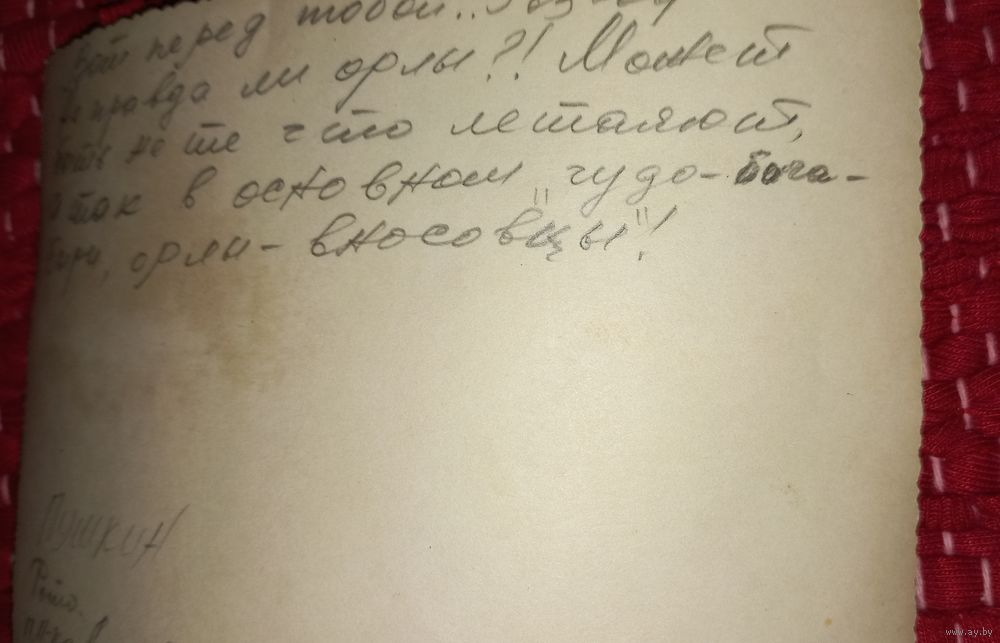 перед тобой..
не правда ли орлы?! Может
быть не те что летают,
а так в основном "чудо-бога-
тыри, орлы-вносовцы"!
Пушкин
Фото.
www.ay.by